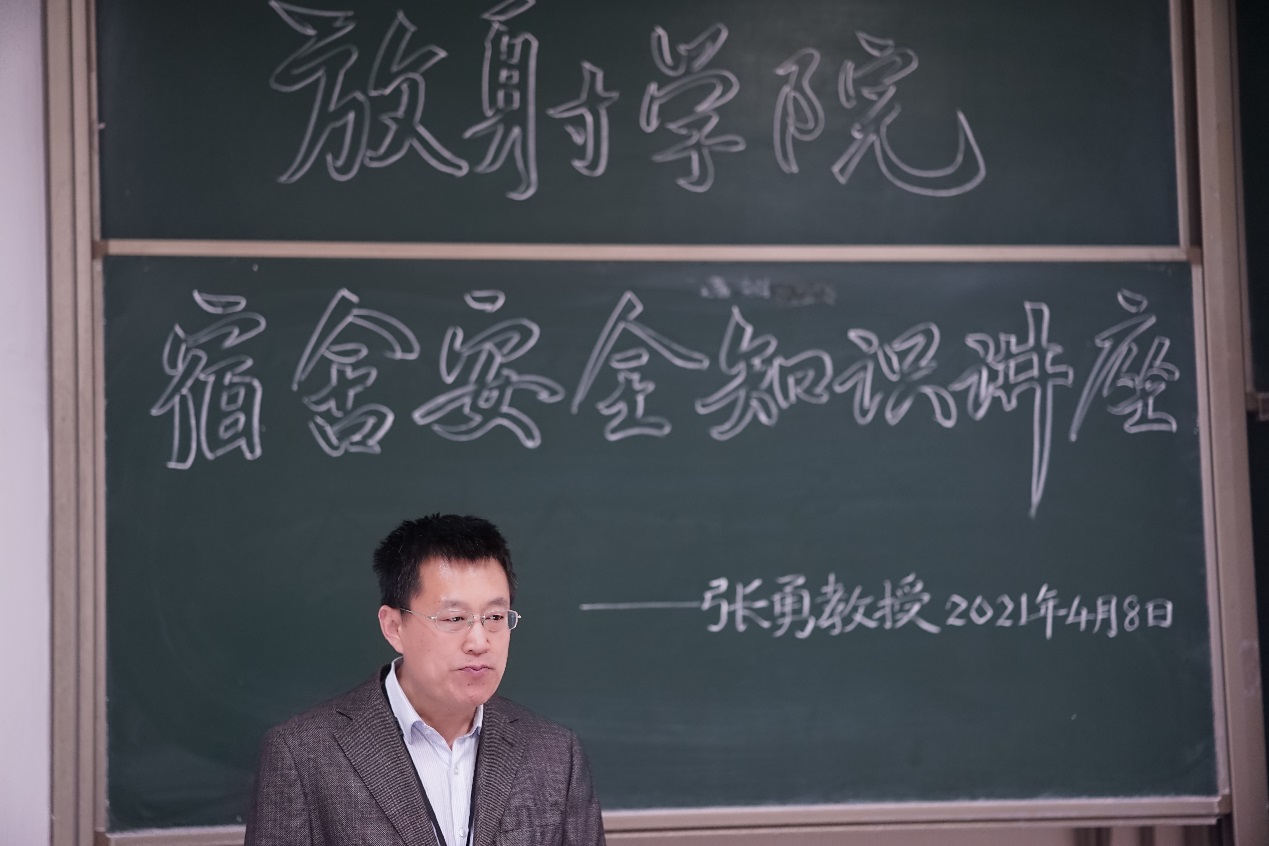 放射学院
宿舍安全知识讲座
——张勇教授 2021年4月8日